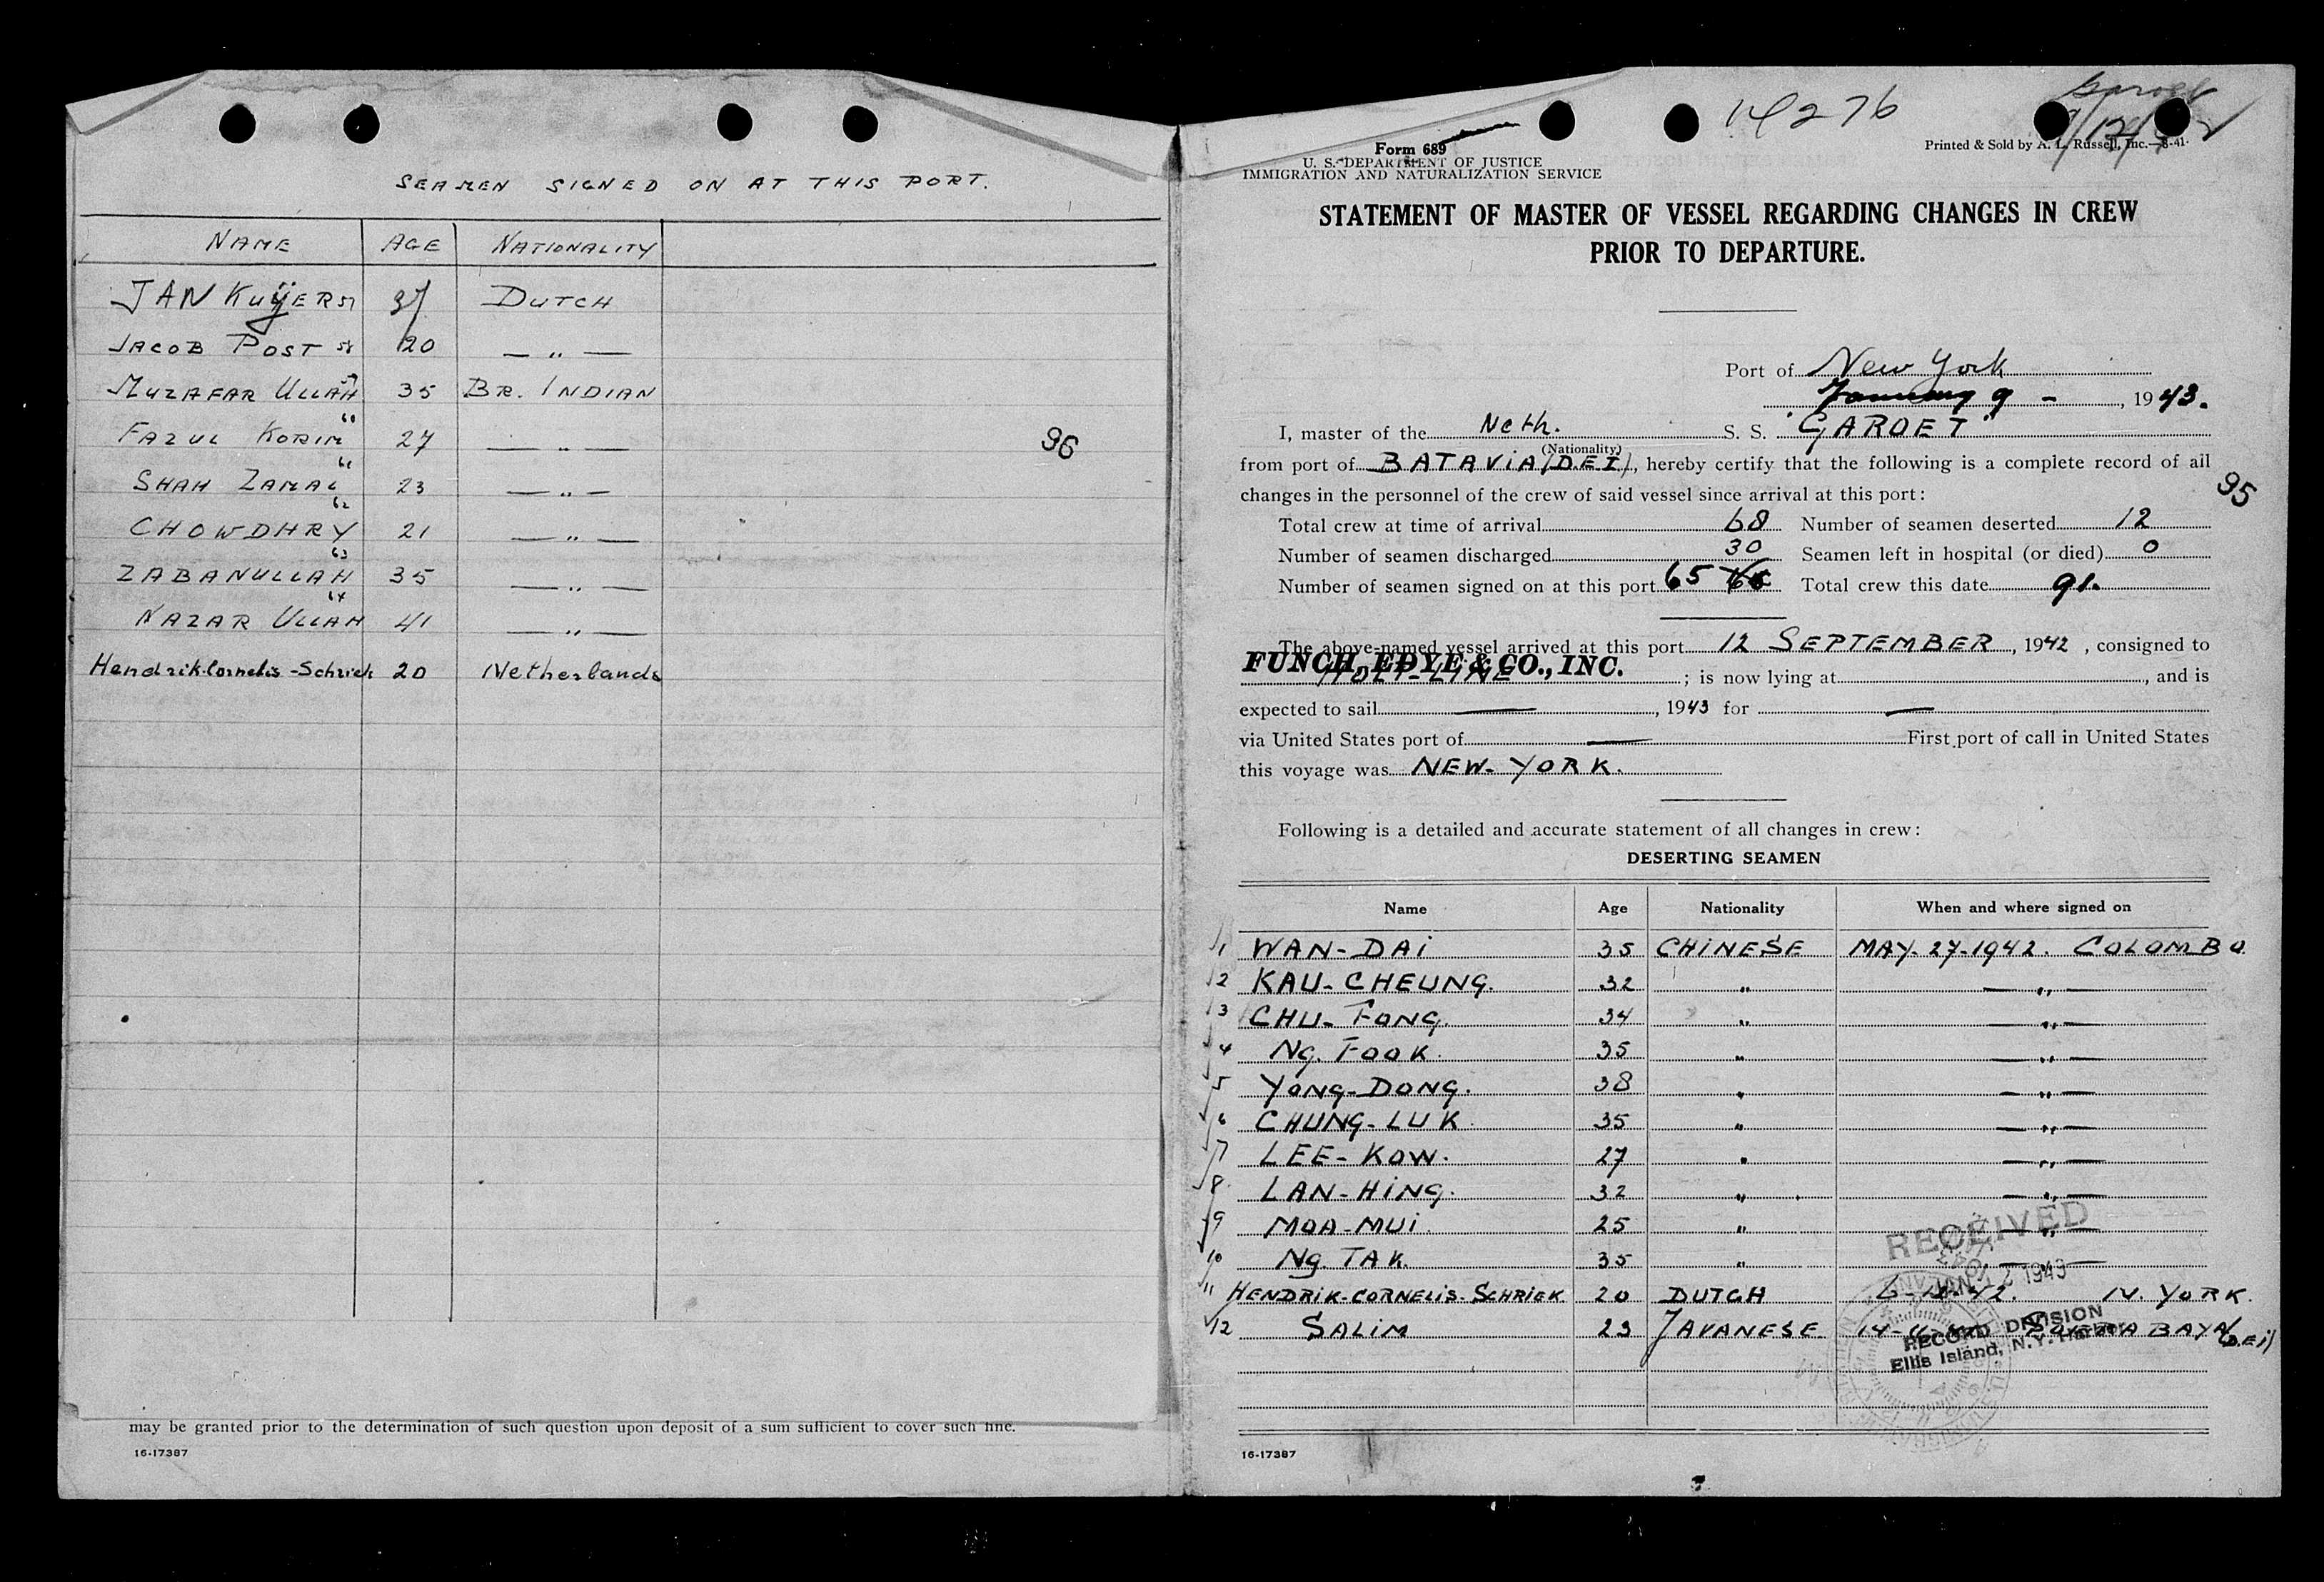 SEAMEN SIGNED ON AT THIS PORT.
NAME AGE NATIONALITY
JAN KUYERS 57 37 DUTCH
JACOB POST 58 20 — „ —
MUZAFAR ULLAH 35 BR. INDIAN
60
FAZUL KORIM 27 — „ —
61
SHAH ZAMAL 23 — „ —
62
CHOWDHRY 21 — „ —
63
ZABANULLAH 35 — „ —
64
NAZAR ULLAH 41 — „ —
Hendrik Cornelis - Schriek 20 Netherlands
96
may be granted prior to the determination of such question upon deposit of a sum sufficient to cover such fine.
16-17387
14276
Garoet
Form 689
U. S. DEPARTMENT OF JUSTICE
IMMIGRATION AND NATURALIZATION SERVICE
Printed & Sold by A. L. Russell, Inc.—8-41
STATEMENT OF MASTER OF VESSEL REGARDING CHANGES IN CREW
PRIOR TO DEPARTURE.
Port of New York
January 9 - , 1943.
I, master of the Neth. S. S. "GAROET"
(Nationality)
from port of BATAVIA (D.E.I), hereby certify that the following is a complete record of all
changes in the personnel of the crew of said vessel since arrival at this port:
95
Total crew at time of arrival 68 Number of seamen deserted 12
Number of seamen discharged 30 Seamen left in hospital (or died) 0
Number of seamen signed on at this port 65 Total crew this date 91.
The above-named vessel arrived at this port 12 SEPTEMBER, 1942, consigned to
FUNCH, EDYE & CO., INC. HOLT-LINE ; is now lying at , and is
expected to sail — , 1943 for —
via United States port of — First port of call in United States
this voyage was NEW-YORK.
Following is a detailed and accurate statement of all changes in crew:
DESERTING SEAMEN
Name Age Nationality When and where signed on
1 WAN-DAI 35 CHINESE MAY-27-1942. COLOMBO
2 KAU-CHEUNG. 32 „ — „ —
3 CHU-FONG. 34 „ — „ —
4 NG. FOOK. 35 „ — „ —
5 YONG-DONG. 38 „ — „ —
6 CHUNG-LUK. 35 „ — „ —
7 LEE-KOW. 27 „ — „ —
8 LAN-HING. 32 „ — „ —
9 MOA-MUI. 25 „ — „ —
10 NG. TAK. 35 „ — „ —
11 HENDRIK-CORNELIS-SCHRIEK 20 DUTCH N. YORK.
12 SALIM 23 JAVANESE SOERABAYA (D.E.I)
RECEIVED
JAN 12 1943
RECORD DIVISION
Ellis Island, N. Y. Harbor
16-17387